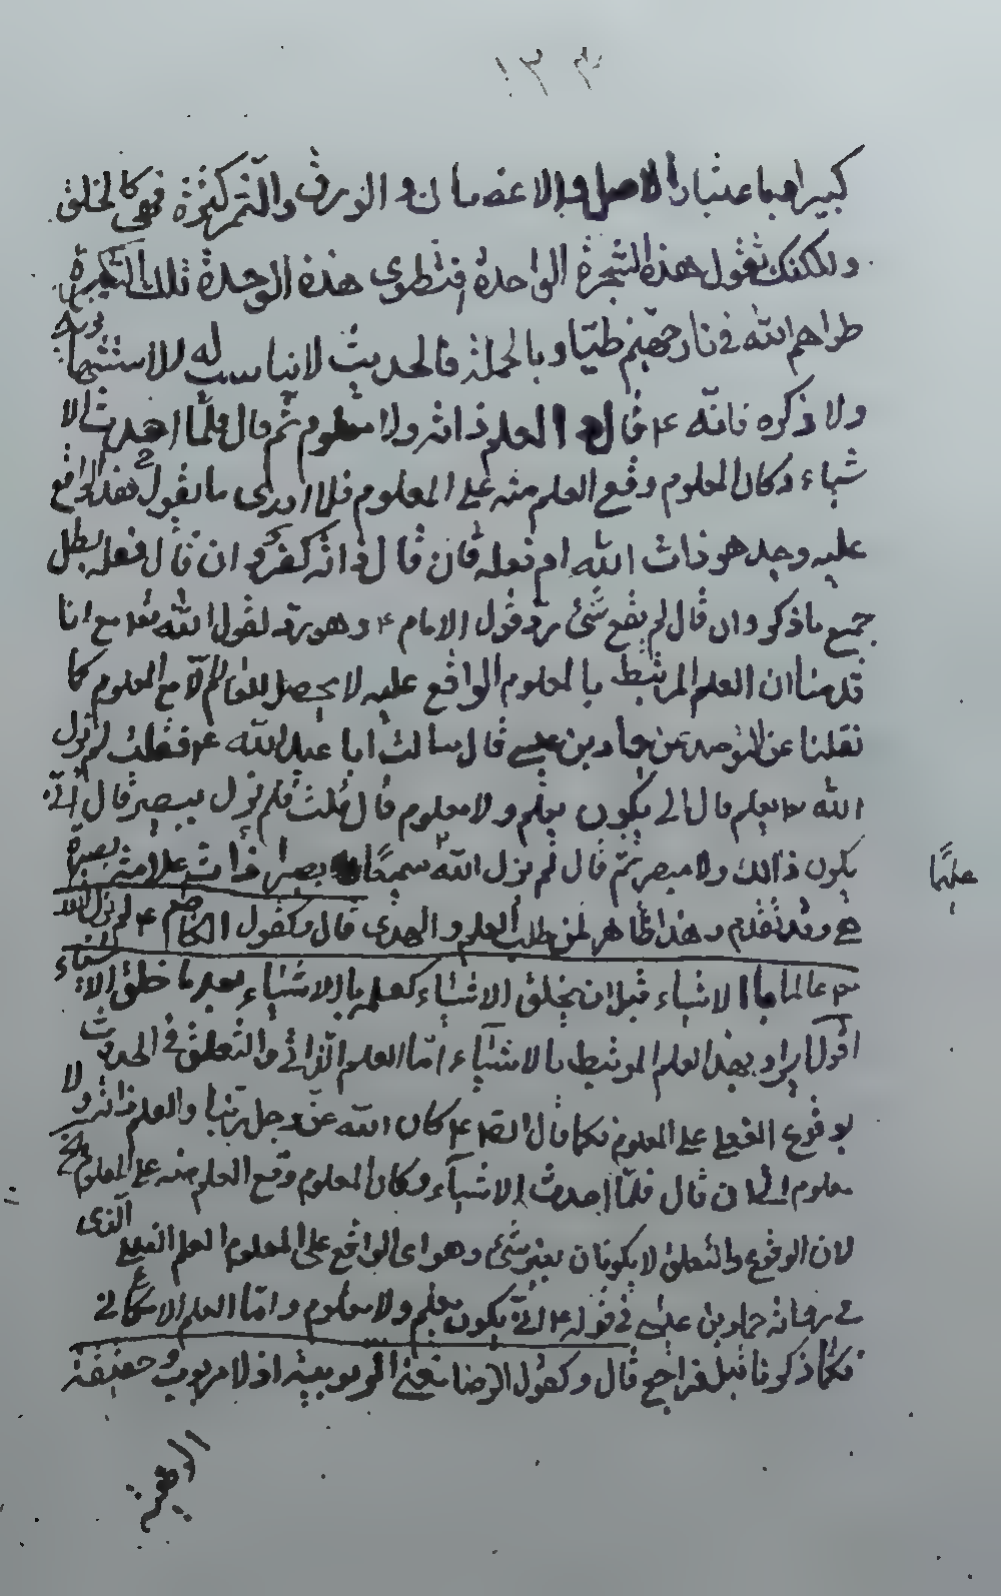 ١٣٤
كبيرا وباعتبار الاصل والاغصان والورق والثمر كثرة فهى كالخلق
ولكنك تقول هذه الشجرة الواحدة فتطوى هذه الوحدة تلك الكثرة
طواهم الله فى نار جهنم طيّا وبالجملة فالحديث لا يناسب له للاستشهاد
ولا ذكره فانّه ع قال والعلم ذاته ولا معلوم ثم قال فلمّا احدث الا
شياء وكان المعلوم وقع العلم منه على المعلوم فلا ادرى ما يقول فهذا الواقع
عليه وجد هو ذات الله ام فعله فان قال ذاته كفر وان قال فعله بطل
جميع ما ذكر وان قال لم يقع شئ ردّ قول الامام ع وهو ردّ لقول الله تع مع انا
قدمنا ان العلم المرتبط بالمعلوم الواقع عليه لا يحصل للعالم الّا مع المعلوم كما
نقلنا عن التوحيد عن حماد بن عيسى قال سالت ابا عبد الله ع فقلت لم يزل
الله يعلم قال انّى يكون يعلم ولا معلوم قال قلت فلم يزل يبصر قال انّى
يكون ذالك ولا مبصر ثم قال لم يزل الله سميعًا بصيرا ذات علامة بصيرة
علّما
هى وقد تقدم وهذا ظاهر لمن طلب العلم والهدى قال وكقول الكاظم ع لم يزل الله
عالما بالاشياء قبل ان يخلق الاشياء كعلمه بالاشياء بعد ما خلق الاشياء
اقول يراد بهذا العلم المرتبط بالاشياء امّا العلم الذاتى والتعلق فى الحدوث
لا
بوقوع الفعلى على المعلوم فكما قال الص ع كان الله عزّ وجل ربّنا والعلم ذاته ولا
معلوم الى ان قال فلمّا احدث الاشياء وكان المعلوم وقع العلم منه على المعلوم الخ
لان الوقوع والتعلق لا يكونان بغير شئ وهو اى الواقع على المعلوم العلم الفعلى الذى
فى رواية حماد بن عيسى فى قوله ع انّى يكون يعلم ولا معلوم وامّا العلم الامكانى
فكما ذكرنا قبل فراجع قال وكقول الرضا معنى الربوبية اذ لا مربوب وحقيقة